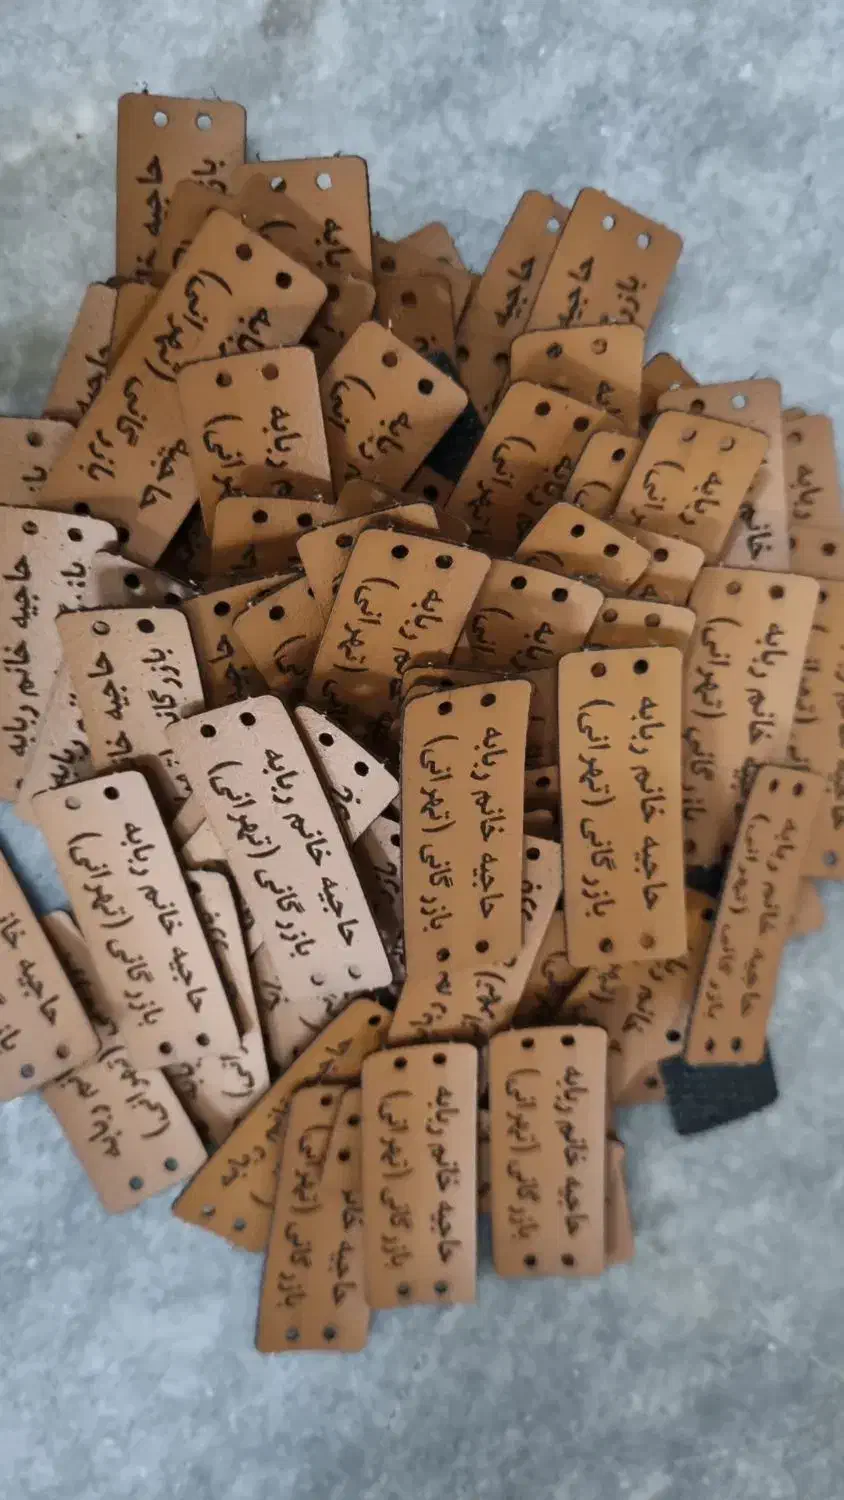 حاجیه خانم ربابه
بازرگانی (تهرانی)